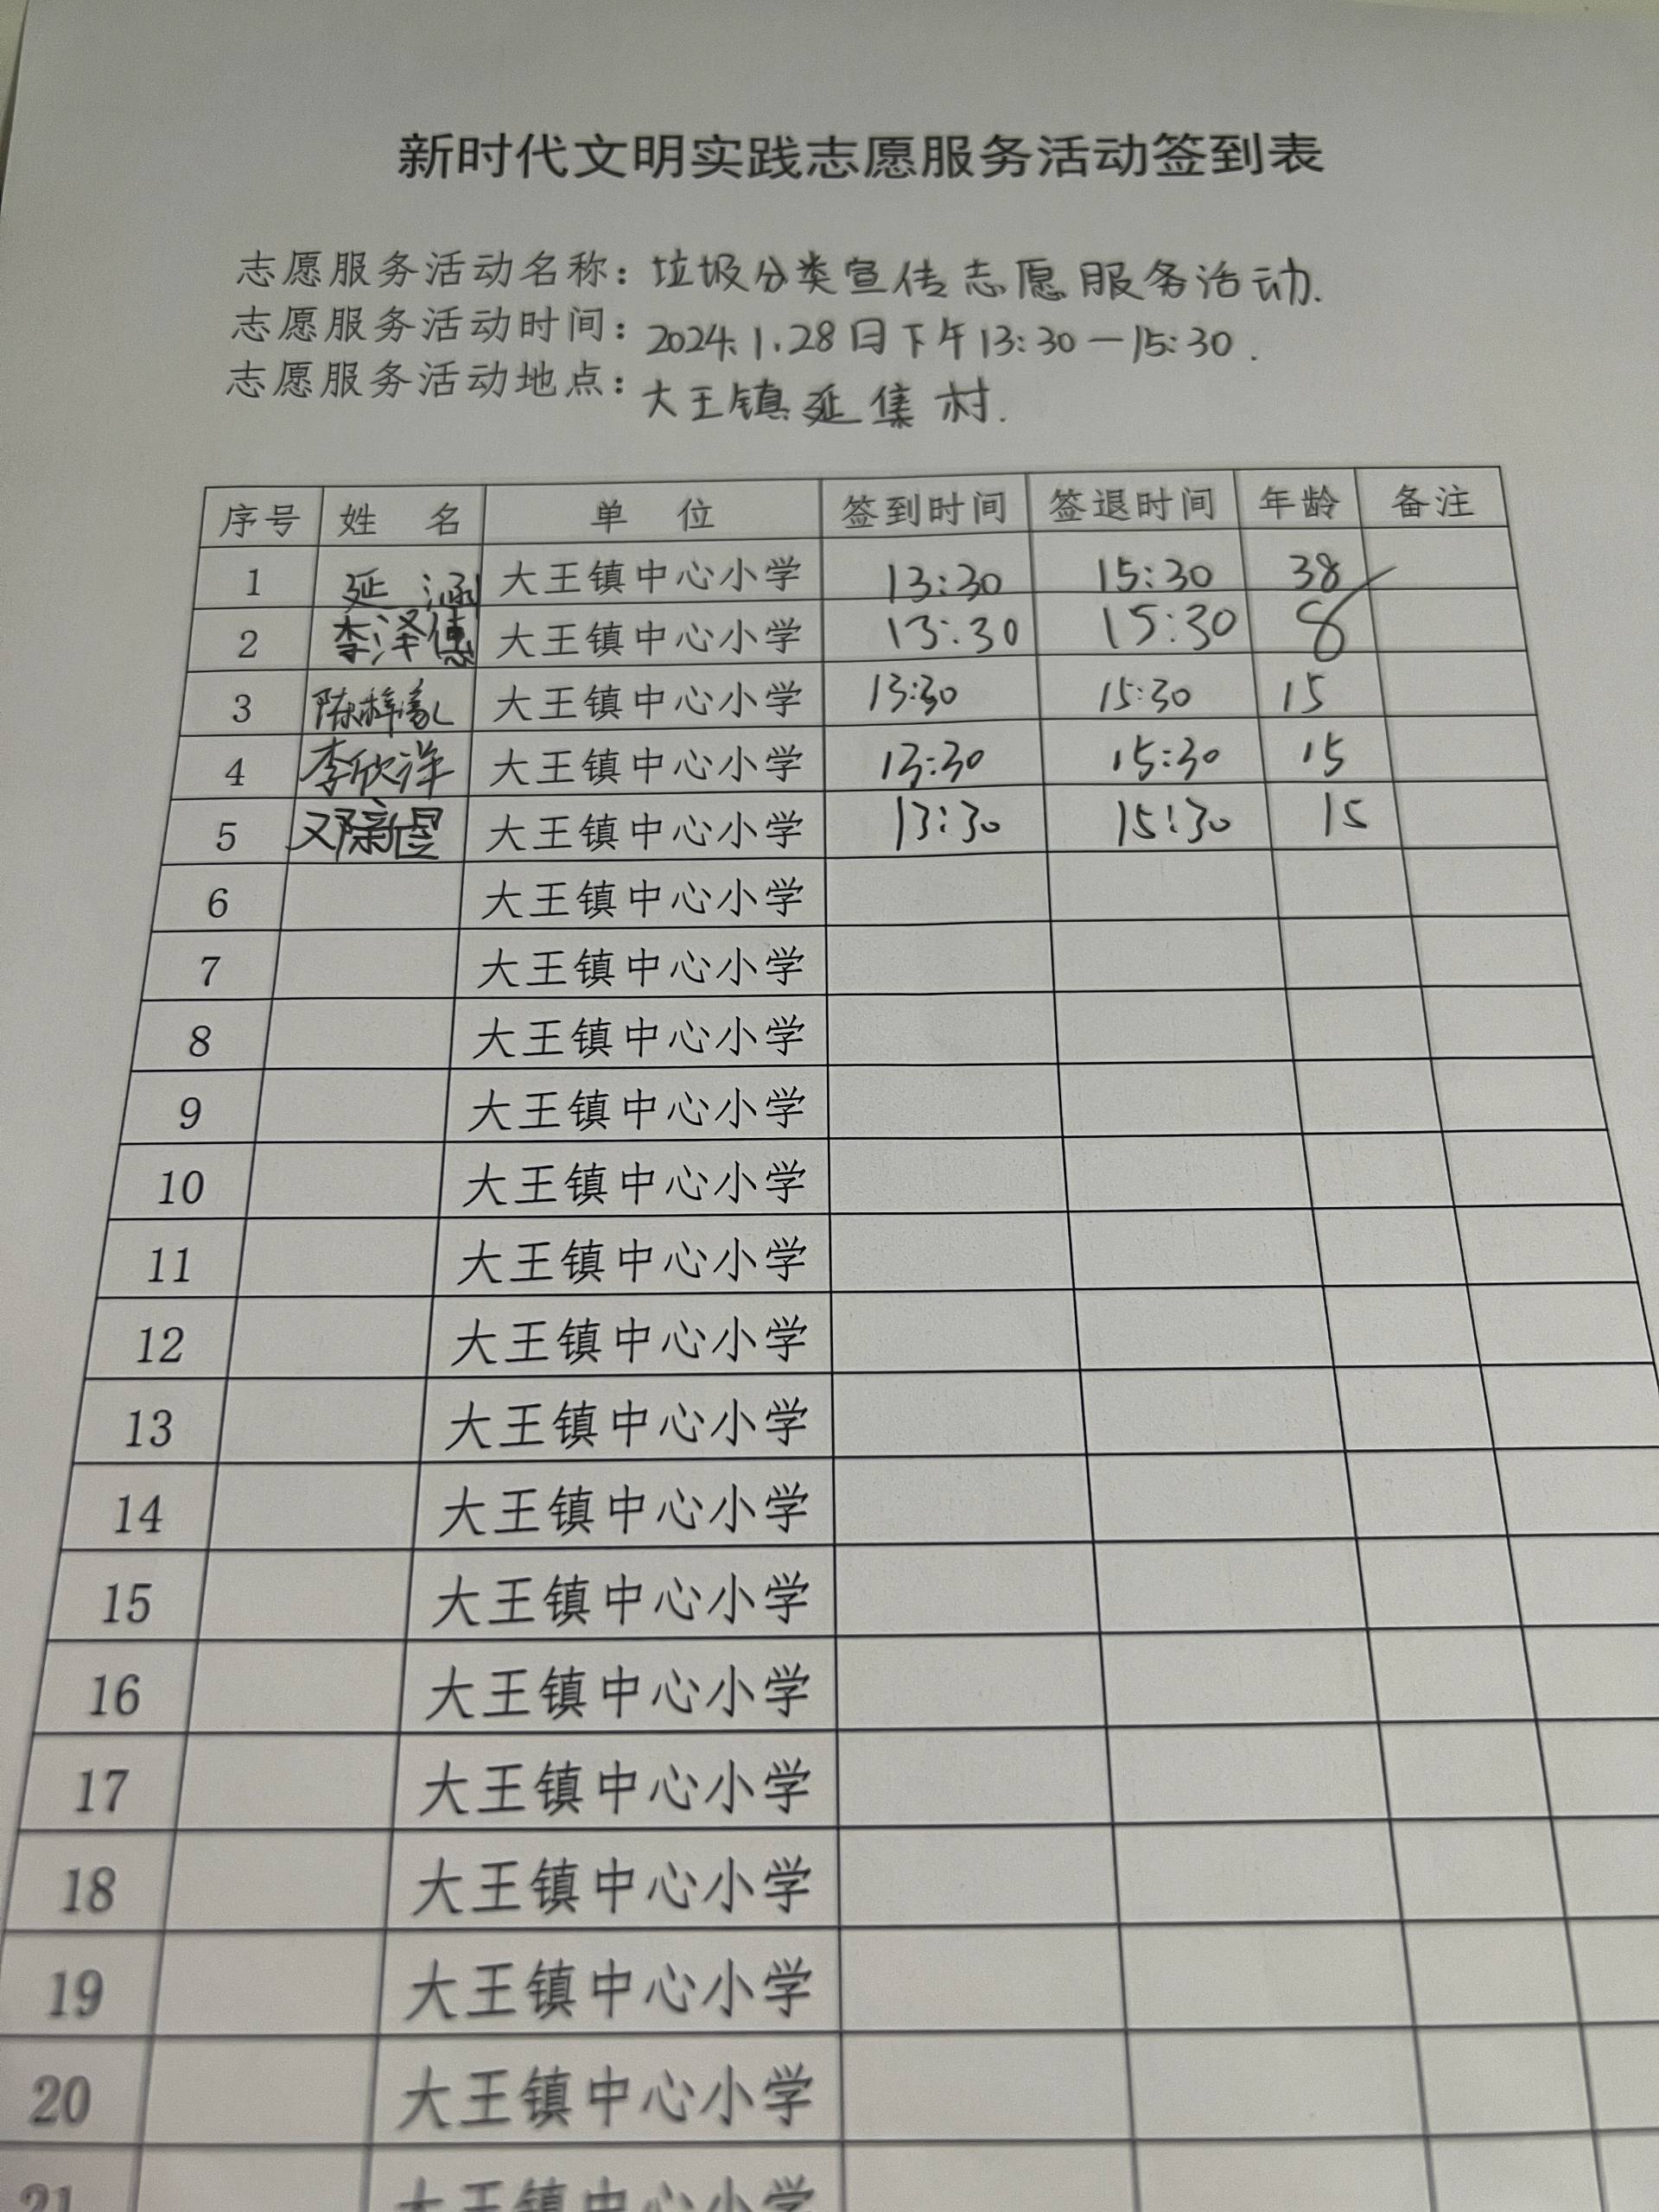 新时代文明实践志愿服务活动签到表
志愿服务活动名称：垃圾分类宣传志愿服务活动.
志愿服务活动时间：2024.1.28日下午13:30—15:30.
志愿服务活动地点：大王镇延集村.
序号 姓 名 单 位 签到时间 签退时间 年龄 备注
1 延涵 大王镇中心小学 13:30 15:30 38
2 李泽 大王镇中心小学 13:30 15:30 8
3 陈梓 大王镇中心小学 13:30 15:30 15
4 李欣洋 大王镇中心小学 13:30 15:30 15
5 大王镇中心小学 13:30 15:30 15
6 大王镇中心小学
7 大王镇中心小学
8 大王镇中心小学
9 大王镇中心小学
10 大王镇中心小学
11 大王镇中心小学
12 大王镇中心小学
13 大王镇中心小学
14 大王镇中心小学
15 大王镇中心小学
16 大王镇中心小学
17 大王镇中心小学
18 大王镇中心小学
19 大王镇中心小学
20 大王镇中心小学
21 大王镇中心小学